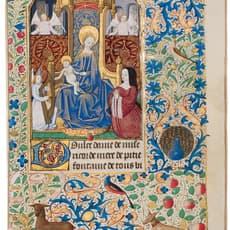 Doulce dame de mise
ricorde mere de pitie
fontaine de tous bi